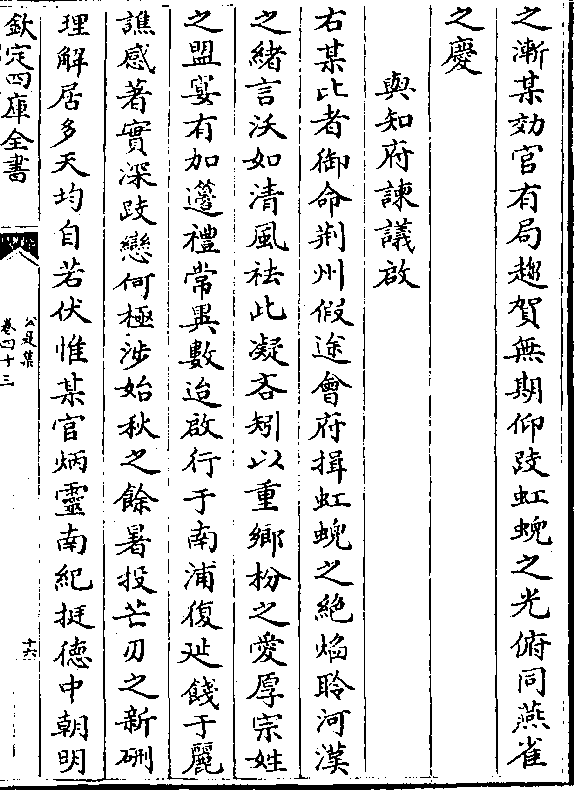 之漸某効官有局趨賀無期仰跂虹蜺之光俯同燕雀
之慶
與知府諫議啟
右某比者御命荆州假途會府揖虹蜺之絶焰聆河漢
之緒言沃如清風袪此凝吝矧以重鄉枌之愛厚宗姓
之盟宴有加籩禮常異數迨啟行于南浦復延餞于麗
譙感著實深跂戀何極涉始秋之餘暑投芒刃之新硎
理解居多天均自若伏惟某官炳靈南紀挺徳中朝明
欽定四庫全書
公是集
卷四十三
十六